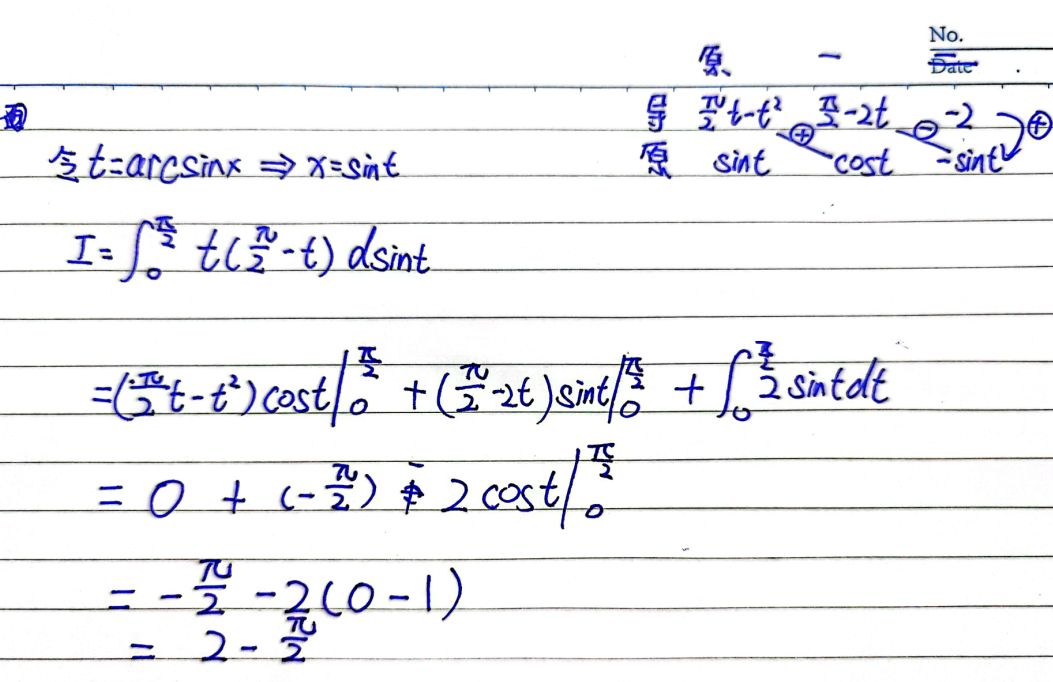 No.
Date
原 一
导 π/2 t-t² π/2-2t -2
原 sint cost -sint
⊕ ⊖ ⊕
令t=arcsinx ⇒ x=sint
I=∫₀^(π/2) t(π/2-t) dsint
=(π/2 t-t²)cost|₀^(π/2) +(π/2-2t)sint|₀^(π/2) + ∫₀^(π/2) 2sintdt
= 0 + (-π/2) - 2cost|₀^(π/2)
= -π/2 -2(0-1)
= 2-π/2